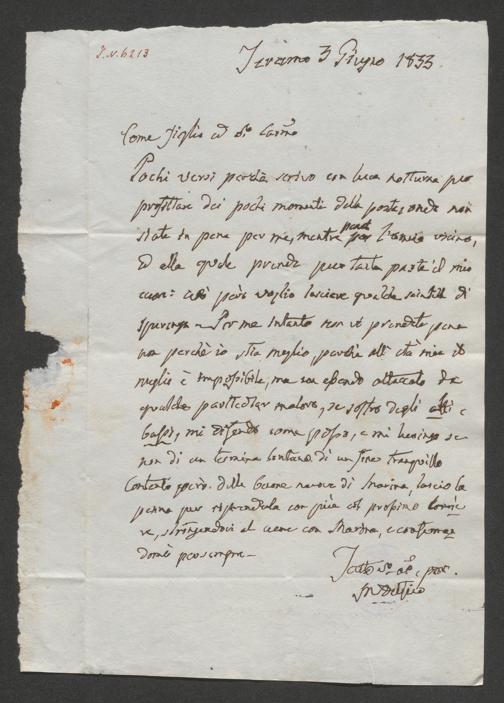 I.N.6213
Teramo 3 Giugno 1833.
Come figlio ed Carmo
Pochi versi perchè scrivo con luce notturna per
profittare dei pochi momenti della posta, onde non
state in pena per me, mentre l'amico vicino,
ed alla quale prende pure tanta parte il mio
cuore: così però voglio lasciare qualche scintilla di
speranza - Per me intanto non vi prendete pena
non perchè io stia meglio, perchè all'età mia il
meglio è impossibile, ma non essendo attaccato da
qualche particolar malore, se soffro degli alti e
bassi, mi difendo come posso, e mi lusingo se
non di un termine lontano, di un fine tranquillo
Contento però delle buone nuove di Marina, lascio la
penna per riprenderla con più col prossimo corrie
re, stringendovi al cuore con Marina, e conferman
domi per sempre -
Tutto vo
MDelfico